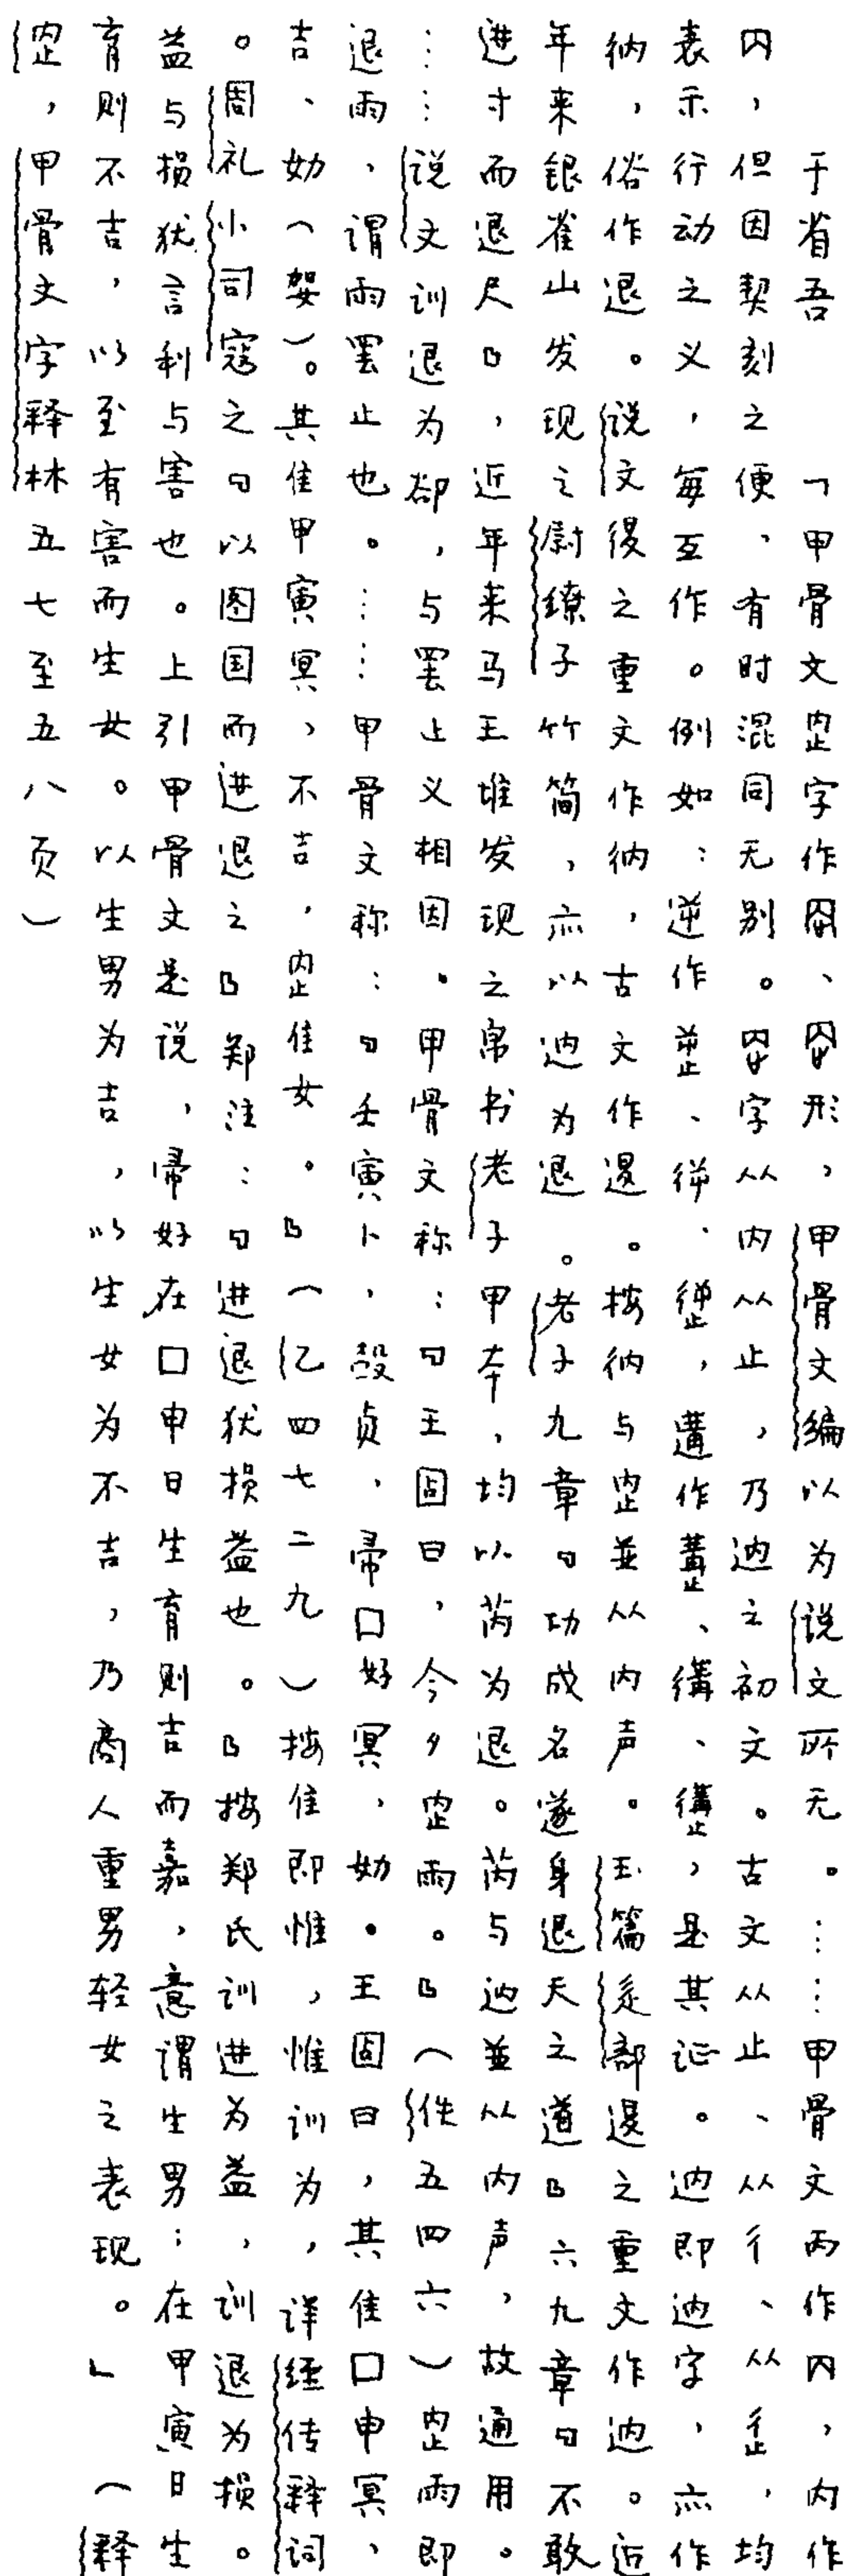 于省吾　「甲骨文⿱内止字作、形，甲骨文编以为说文所无。……甲骨文丙作内，内作
内，但因契刻之便、有时混同无别。⿱内止字从内从止，乃⿺辶内之初文。古文从止、从彳、从辵，均
表示行动之义，每互作。例如：逆作⿱屰止、⿰彳屰、，遘作⿱冓止、⿰彳冓、，是其证。⿺辶内即⿺辶内字，亦作
⿰彳内，俗作退。说文㣟之重文作⿰彳内，古文作𨓤。按⿰彳内与⿱内止並从内声。玉篇辵部𨓤之重文作⿺辶内。近
年来银雀山发现之尉缭子竹简，亦以⿺辶内为退。老子九章『功成名遂身退天之道』六九章『不敢
进寸而退尺』，近年来马王堆发现之帛书老子甲本，均以芮为退。芮与⿺辶内並从内声，故通用。
……说文训退为却，与罢止义相因。甲骨文称：『王固曰，今夕⿱内止雨。』（佚五四六）⿱内止雨即
退雨，谓雨罢止也。……甲骨文称：『壬寅卜，㱿贞，帚囗好冥，㚤。王固曰，其隹囗申冥、
吉、㚤（㚙）。其隹甲寅冥，不吉，⿱内止隹女。』（乙四七二九）按隹即惟，惟训为，详经传释词
。周礼小司寇之『以图国而进退之』郑注：『进退犹损益也。』按郑氏训进为益，训退为损。
益与损犹言利与害也。上引甲骨文是说，帚好在囗申日生育则吉而嘉，意谓生男；在甲寅日生
育则不吉，以至有害而生女。以生男为吉，以生女为不吉，乃商人重男轻女之表现。」（释
⿱内止，甲骨文字释林五七至五八页）